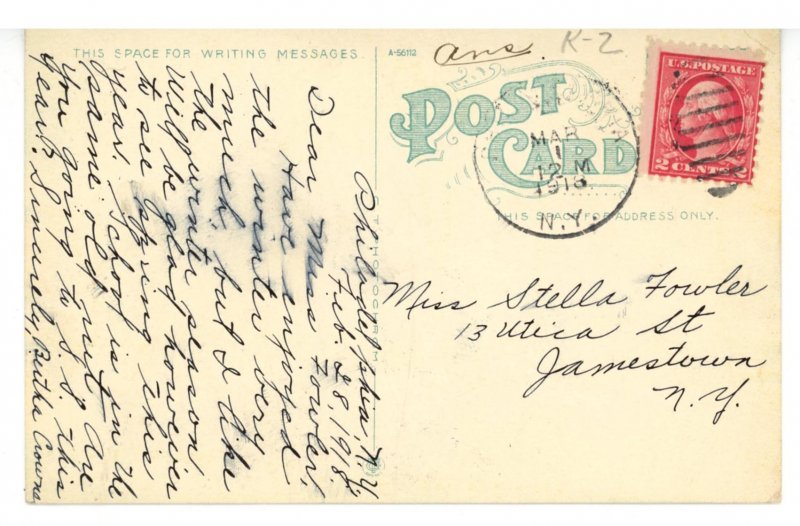 THIS SPACE FOR WRITING MESSAGES.
A-56112
Ans.
K-2
POST
CARD
THIS SPACE FOR ADDRESS ONLY.
U.S. POSTAGE
2 CENTS 2
MAR
1
12 M
1918
N.Y.
Miss Stella Fowler
13 Utica St
Jamestown
N.Y.
Philadelphia, N.Y.
Feb. 28, 1918.
Dear Miss Fowler,
Have enjoyed
the winter very
much but I like
the
winter season
will be glad however
to see spring this
year. School is in the
same old rut. Are
you going to S. S. this
year? Sincerely, Bertha Crowne